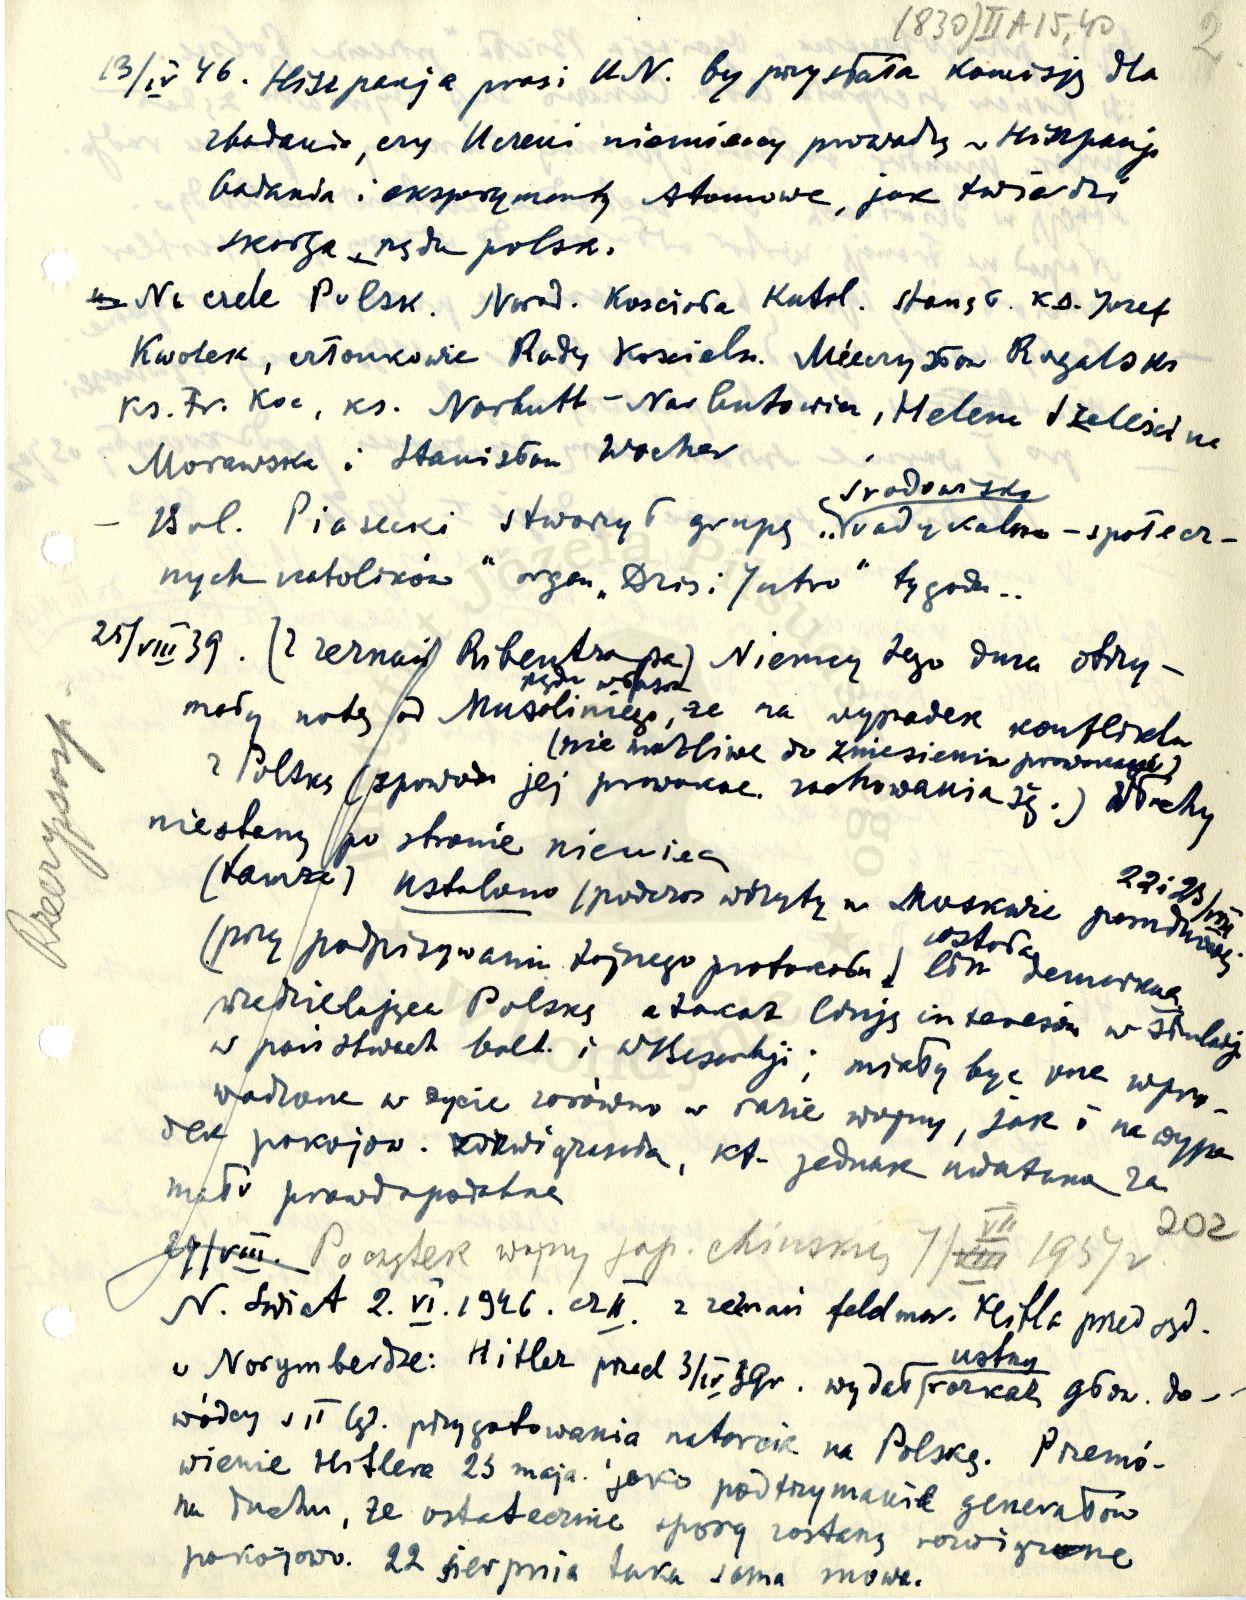 (830) II A 15, 40
2
13/IV 46. Hiszpanja prosi U.N. by przysłała Komisję dla
zbadania, czy Uczeni niemieccy prowadzą w Hiszpanji
badania i eksperymenty Atomowe, jak twierdzi
skarga rządu polsk.
Na czele Polsk. Narod. Kościoła Katol. stanął ks. Józef
Kwolek, członkowie Rady Kościeln. Mieczysław Rogalski
ks. Fr. Koc, ks. Norbutt-Narbutowicz, Helena
Morawska i Stanisław Wocher
środowisko
- Bol. Piasecki stworzył grupę „radykalno-społecz-
nych katolików" organ „Dziś i Jutro" tygodn..
25/VIII 39. (z zeznań Ribentropa) Niemcy tego dnia otrzy-
rządu włosk
mały notę od Musoliniego, że na wypadek konfliktu
(nie możliwe do zniesienia prowokacje)
z Polską (spowodu jej prowokac. zachowania się.) Włochy
niestaną po stronie niemiec
(tamże) ustalono (podczas wizyty w Moskwie 22 i 23/VIII
(przy podpisywaniu tajnego protokołu) została linja demarkac.
rozdzielająca Polskę a także linję interesów w Finlandji
w państwach bałt. i w Besarabji; miały być one wpro-
wadzone w życie zarówno w razie wojny, jak i na wypa
dek pokojow. rozwiązania, kt. jednak uważano za
mało prawdopodobne
Rzeczyposp.
27/VIII. Początek wojny jap. chinskiej 7/VII 1937 r.
202
N. Świat 2. VI. 1946. cz II. z zeznań feldmar. Keitla przed sąd.
ustny
w Norymberdze: Hitler przed 3/IV 39 r. wydał rozkaz głów. do-
wódcy s II ląd. przygotowania natarcia na Polskę. Przemó-
wienie Hitlera 23 maja jako podtrzymanie generałów
na duchu, że ostatecznie spory zostaną rozwiązane
pokojowo. 22 sierpnia taka sama mowa.